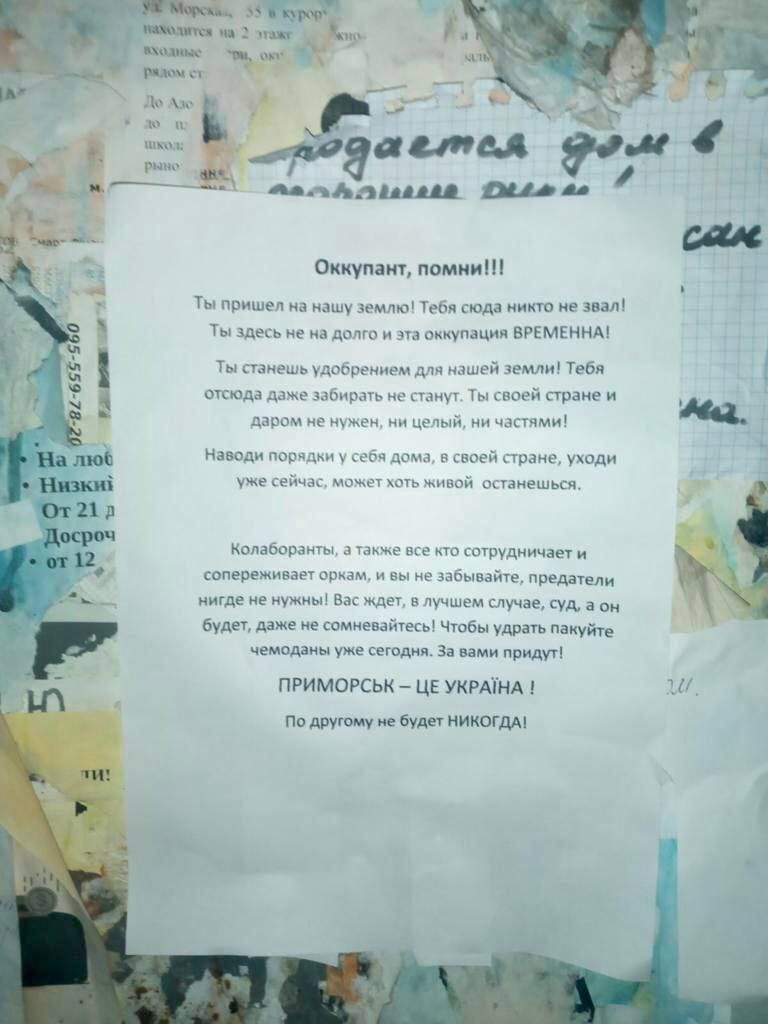 ул. Морская, 55 в курор
находится на 2 этаже
входные
рядом ст
До Азо
до п
школ
рыно
м.
Продается дом в
сан
095-559-78-20
На люб
Низкий
От 21 д
Досроч
от 12
Оккупант, помни!!!
Ты пришел на нашу землю! Тебя сюда никто не звал!
Ты здесь не на долго и эта оккупация ВРЕМЕННА!
Ты станешь удобрением для нашей земли! Тебя
отсюда даже забирать не станут. Ты своей стране и
даром не нужен, ни целый, ни частями!
Наводи порядки у себя дома, в своей стране, уходи
уже сейчас, может хоть живой останешься.
Колаборанты, а также все кто сотрудничает и
сопереживает оркам, и вы не забывайте, предатели
нигде не нужны! Вас ждет, в лучшем случае, суд, а он
будет, даже не сомневайтесь! Чтобы удрать пакуйте
чемоданы уже сегодня. За вами придут!
ПРИМОРСЬК – ЦЕ УКРАЇНА !
По другому не будет НИКОГДА!